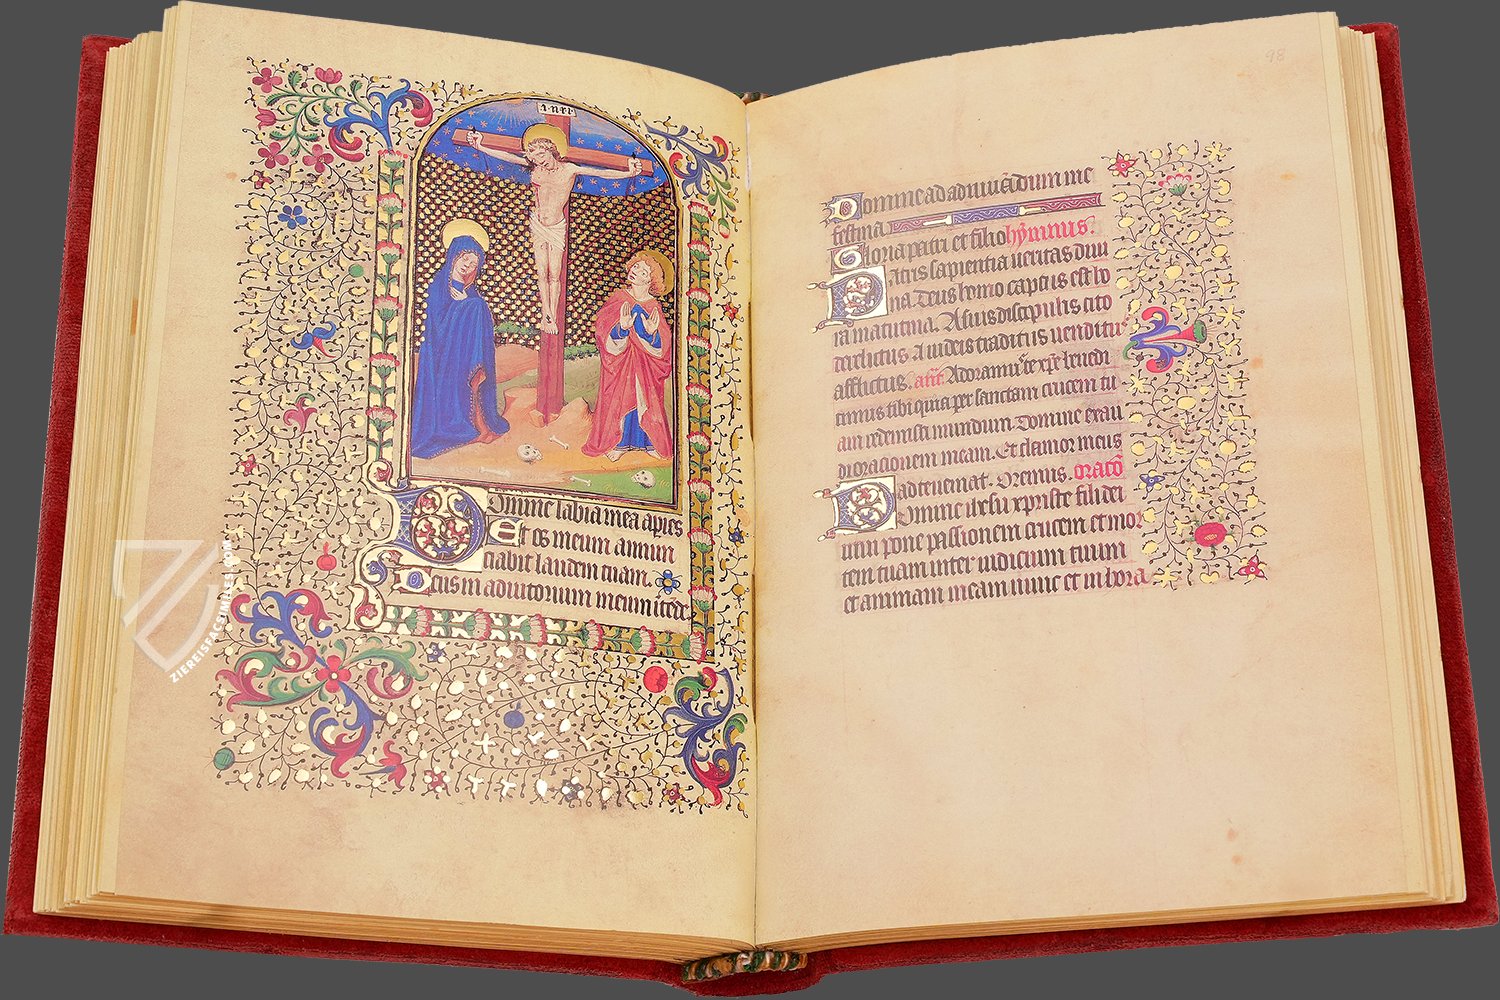 I·NRI·
Domine labia mea apies
Et os meum annun
ciabit laudem tuam.
Deus in adiutorium meum itede
98
Domine ad adiuuādum me
festina
Gloria patri et filio hymnus.
Patris sapientia ueritas diui
na. Deus homo captus est ho
ra matutina. A suis discipulis cito
derelictus A iudeis traditus uenditus
afflictus. ant. Adoramus te xpe benedi
cimus tibi quia per sanctam crucem tu
am redemisti mundum Domine exau
di orationem meam. Et clamor meus
ad te ueniat. Oremus. oratō
Domine ihesu xpriste fili dei
uiui pone passionem crucem et mor
tem tuam inter iudicium tuum
et animam meam nunc et in hora
ZIEREISFACSIMILES.COM